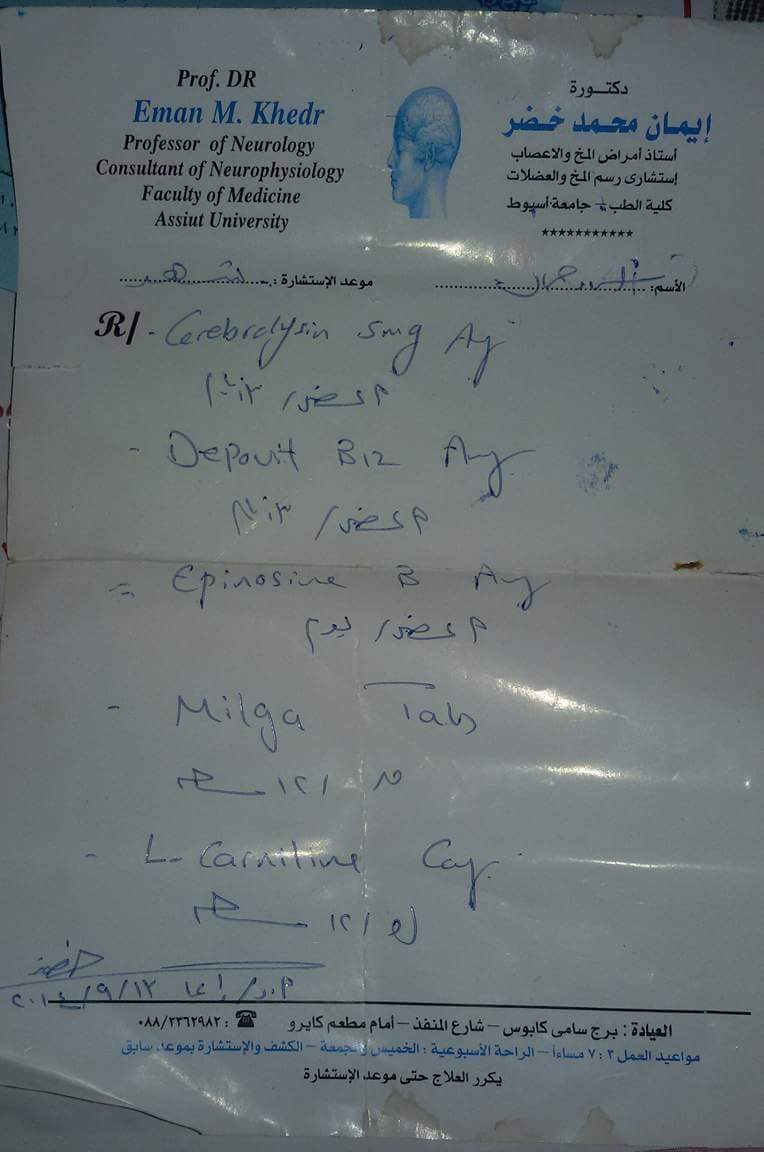 Prof. DR
Eman M. Khedr
Professor of Neurology
Consultant of Neurophysiology
Faculty of Medicine
Assiut University
دكتـــورة
إيمـان محمـد خضـر
أستاذ أمراض المخ والاعصاب
إستشارى رسم المخ والعضلات
كلية الطب - جامعة أسيوط
***********
الأسم:
موعد الإستشارة :
R/ - Cerebrolysin 5mg Amp
حقنة عضل / ٣ أيام
- Depovit B12 Amp
عضل / ٣ أيام
= Epinosine B Amp
عضل / يوم
- Milga Tab
١٢ /
- L-Carnitine Cap.
١٢ /
٢٠١٤/٩/١٣
العيادة : برج سامى كابوس – شارع المنفذ – أمام مطعم كايرو ☎ : ٠٨٨/٢٣٦٢٩٨٢
مواعيد العمل ٢ : ٧ مساءاً – الراحة الأسبوعية : الخميس والجمعة – الكشف والإستشارة بموعد سابق
يكرر العلاج حتى موعد الإستشارة